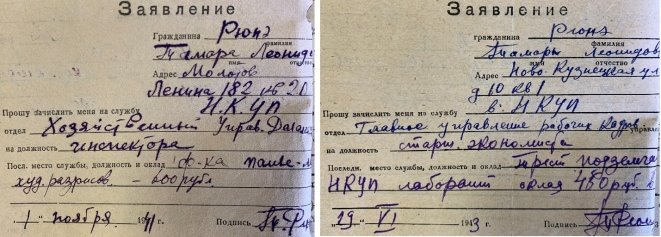 Заявление
Гражданина Рюнэ
фамилия
Тамара Леонид
имя отчество
Адрес Молотов
Ленина 182 кв 20
Прошу зачислить меня на службу Н.К.У.П
отдел Хозяйственный Управ.
на должность инспектора
Посл. место службы, должность и оклад ф-ка
худ. разрисов. 600 рубл
1 ноября 1941 г. Подпись
Заявление
гражданина Рюнэ
фамилия
Тамары Леонидов
имя отчество
Адрес Ново-Кузнецкая ул
д 10 кв 1
Прошу зачислить меня на службу в НКУП
отдел Главное управление рабочих кадров
на должность старш. экономиста
Последн. место службы, должность и оклад трест
НКУП лаборант оклад 450 рубл.
29 VI 1943 г. Подпись